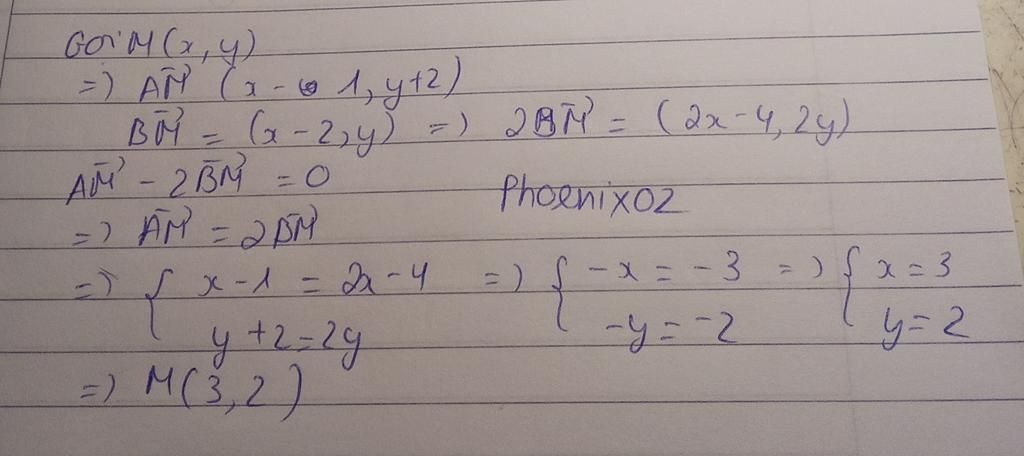 Gọi M(x, y)
=) AM⃗ (x - 1, y+2)
BM⃗ = (x-2, y) =) 2BM⃗ = (2x-4, 2y)
AM⃗ - 2BM⃗ = 0
Phoenix02
=) AM⃗ = 2BM⃗
=) { x-1 = 2x-4 =) { -x = -3 =) { x = 3
y+2=2y -y = -2 y = 2
=) M(3, 2)